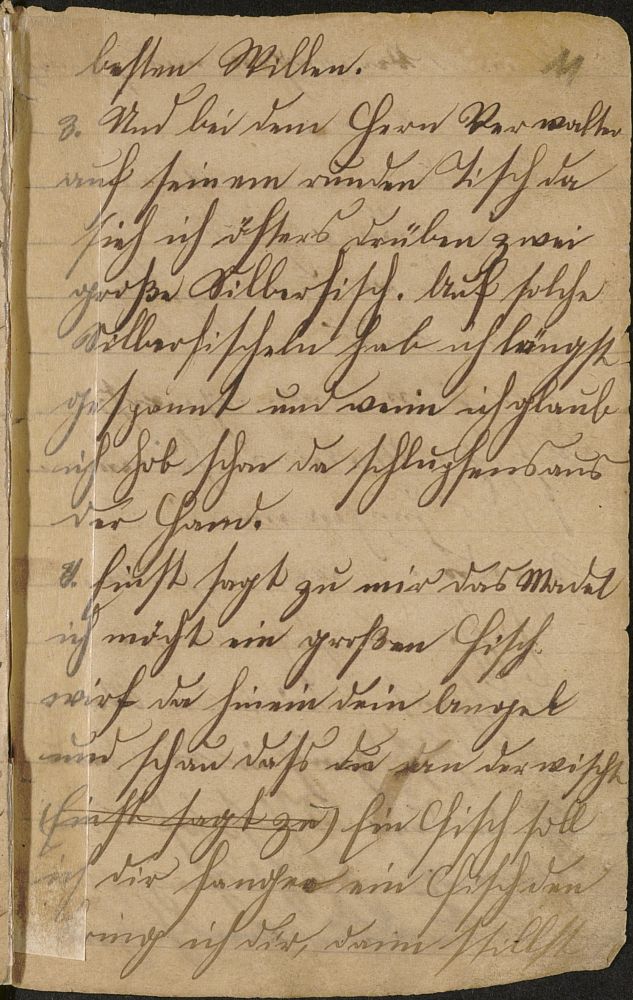 11
besten Willen.
3. Und bei dem Herrn Verwalter
auf seinem runden Tisch da
sieh ich öfters drüben zwei
große Silberfisch. Auf solche
Silberfischeln hab ich längst
gespannt und wenn ich glaub
ich hob schon da schlupfens aus
der Hand.
4. Einst sagt zu mir das Madel
ich möcht ein großen Fisch.
wirf da hinein dein Angel
und schau dass du an derwischt
(Einst sagt zu) Ein Fisch soll
ich dir fangen ein Fisch den
bring ich dir, dann stillst